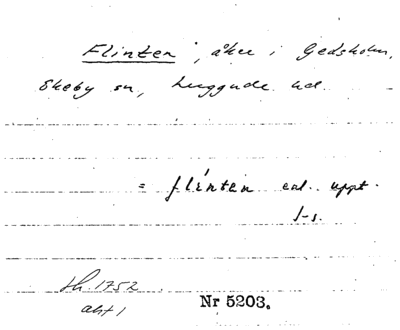 Flinten, åker i Gedsholm,
Ekeby sn, Luggude hd.
= flinten enl. uppt.
J-s.
Sk. 1752
akt 1
Nr 5203.